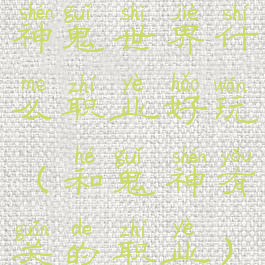 shén guǐ shì jiè shí
神鬼世界什
me zhí yè hǎo wán
么职业好玩
hé guǐ shén yǒu
（和鬼神有
guān de zhí yè
关的职业）